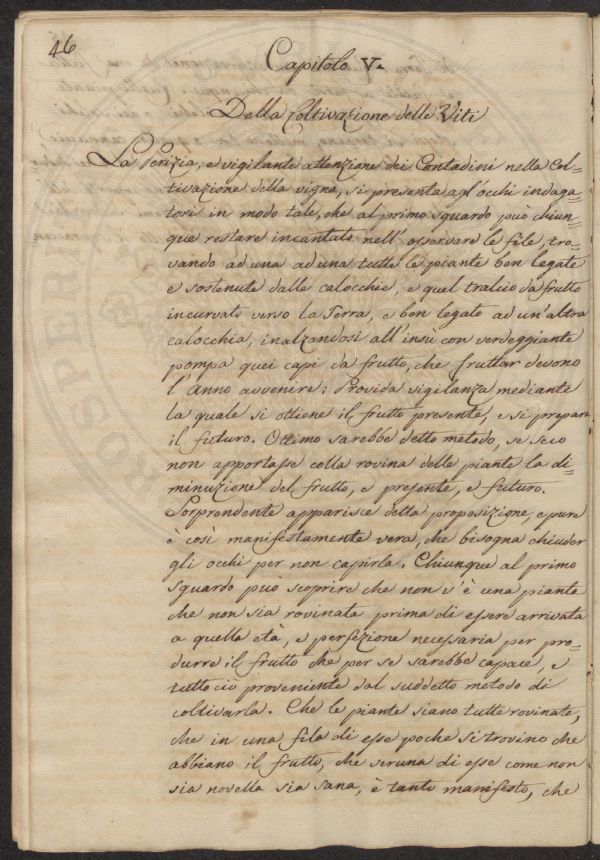 46
Capitolo V.
Della Coltivazione delle Viti
La Perizia, e vigilante attenzione dei Contadini nella Col=
tivazione della vigna, si presenta agl'occhi indaga=
tori in modo tale, che al primo sguardo può chiun=
que restare incantato nell'osservare le file, tro=
vando ad una ad una tutte le piante ben legate
e sostenute dalle calocchie, e quel tralcio da frutto
incurvato verso la Terra, e ben legato ad un'altra
calocchia, inalzandosi all'insù con verdeggiante
pompa quei capi da frutto, che fruttar devono
l'Anno avvenire: Provida vigilanza mediante
la quale si ottiene il frutto presente, e si prepara
il futuro. Ottimo sarebbe detto metodo, se seco
non apportasse colla rovina delle piante la di=
minuzione del frutto, e presente, e futuro.
Sorprendente apparisce detta proposizione, e pure
è così manifestamente vera, che bisogna chiuder
gli occhi per non capirla. Chiunque al primo
sguardo può scoprire che non v'è una pianta
che non sia rovinata prima di essere arrivata
a quella età, e perfezione necessaria per pro=
durre il frutto che per se sarebbe capace, e
tutto ciò proveniente dal suddetto metodo di
coltivarla. Che le piante siano tutte rovinate,
che in una fila di esse poche si trovino che
abbiano il frutto, che veruna di esse come non
sia novella sia sana, è tanto manifesto, che